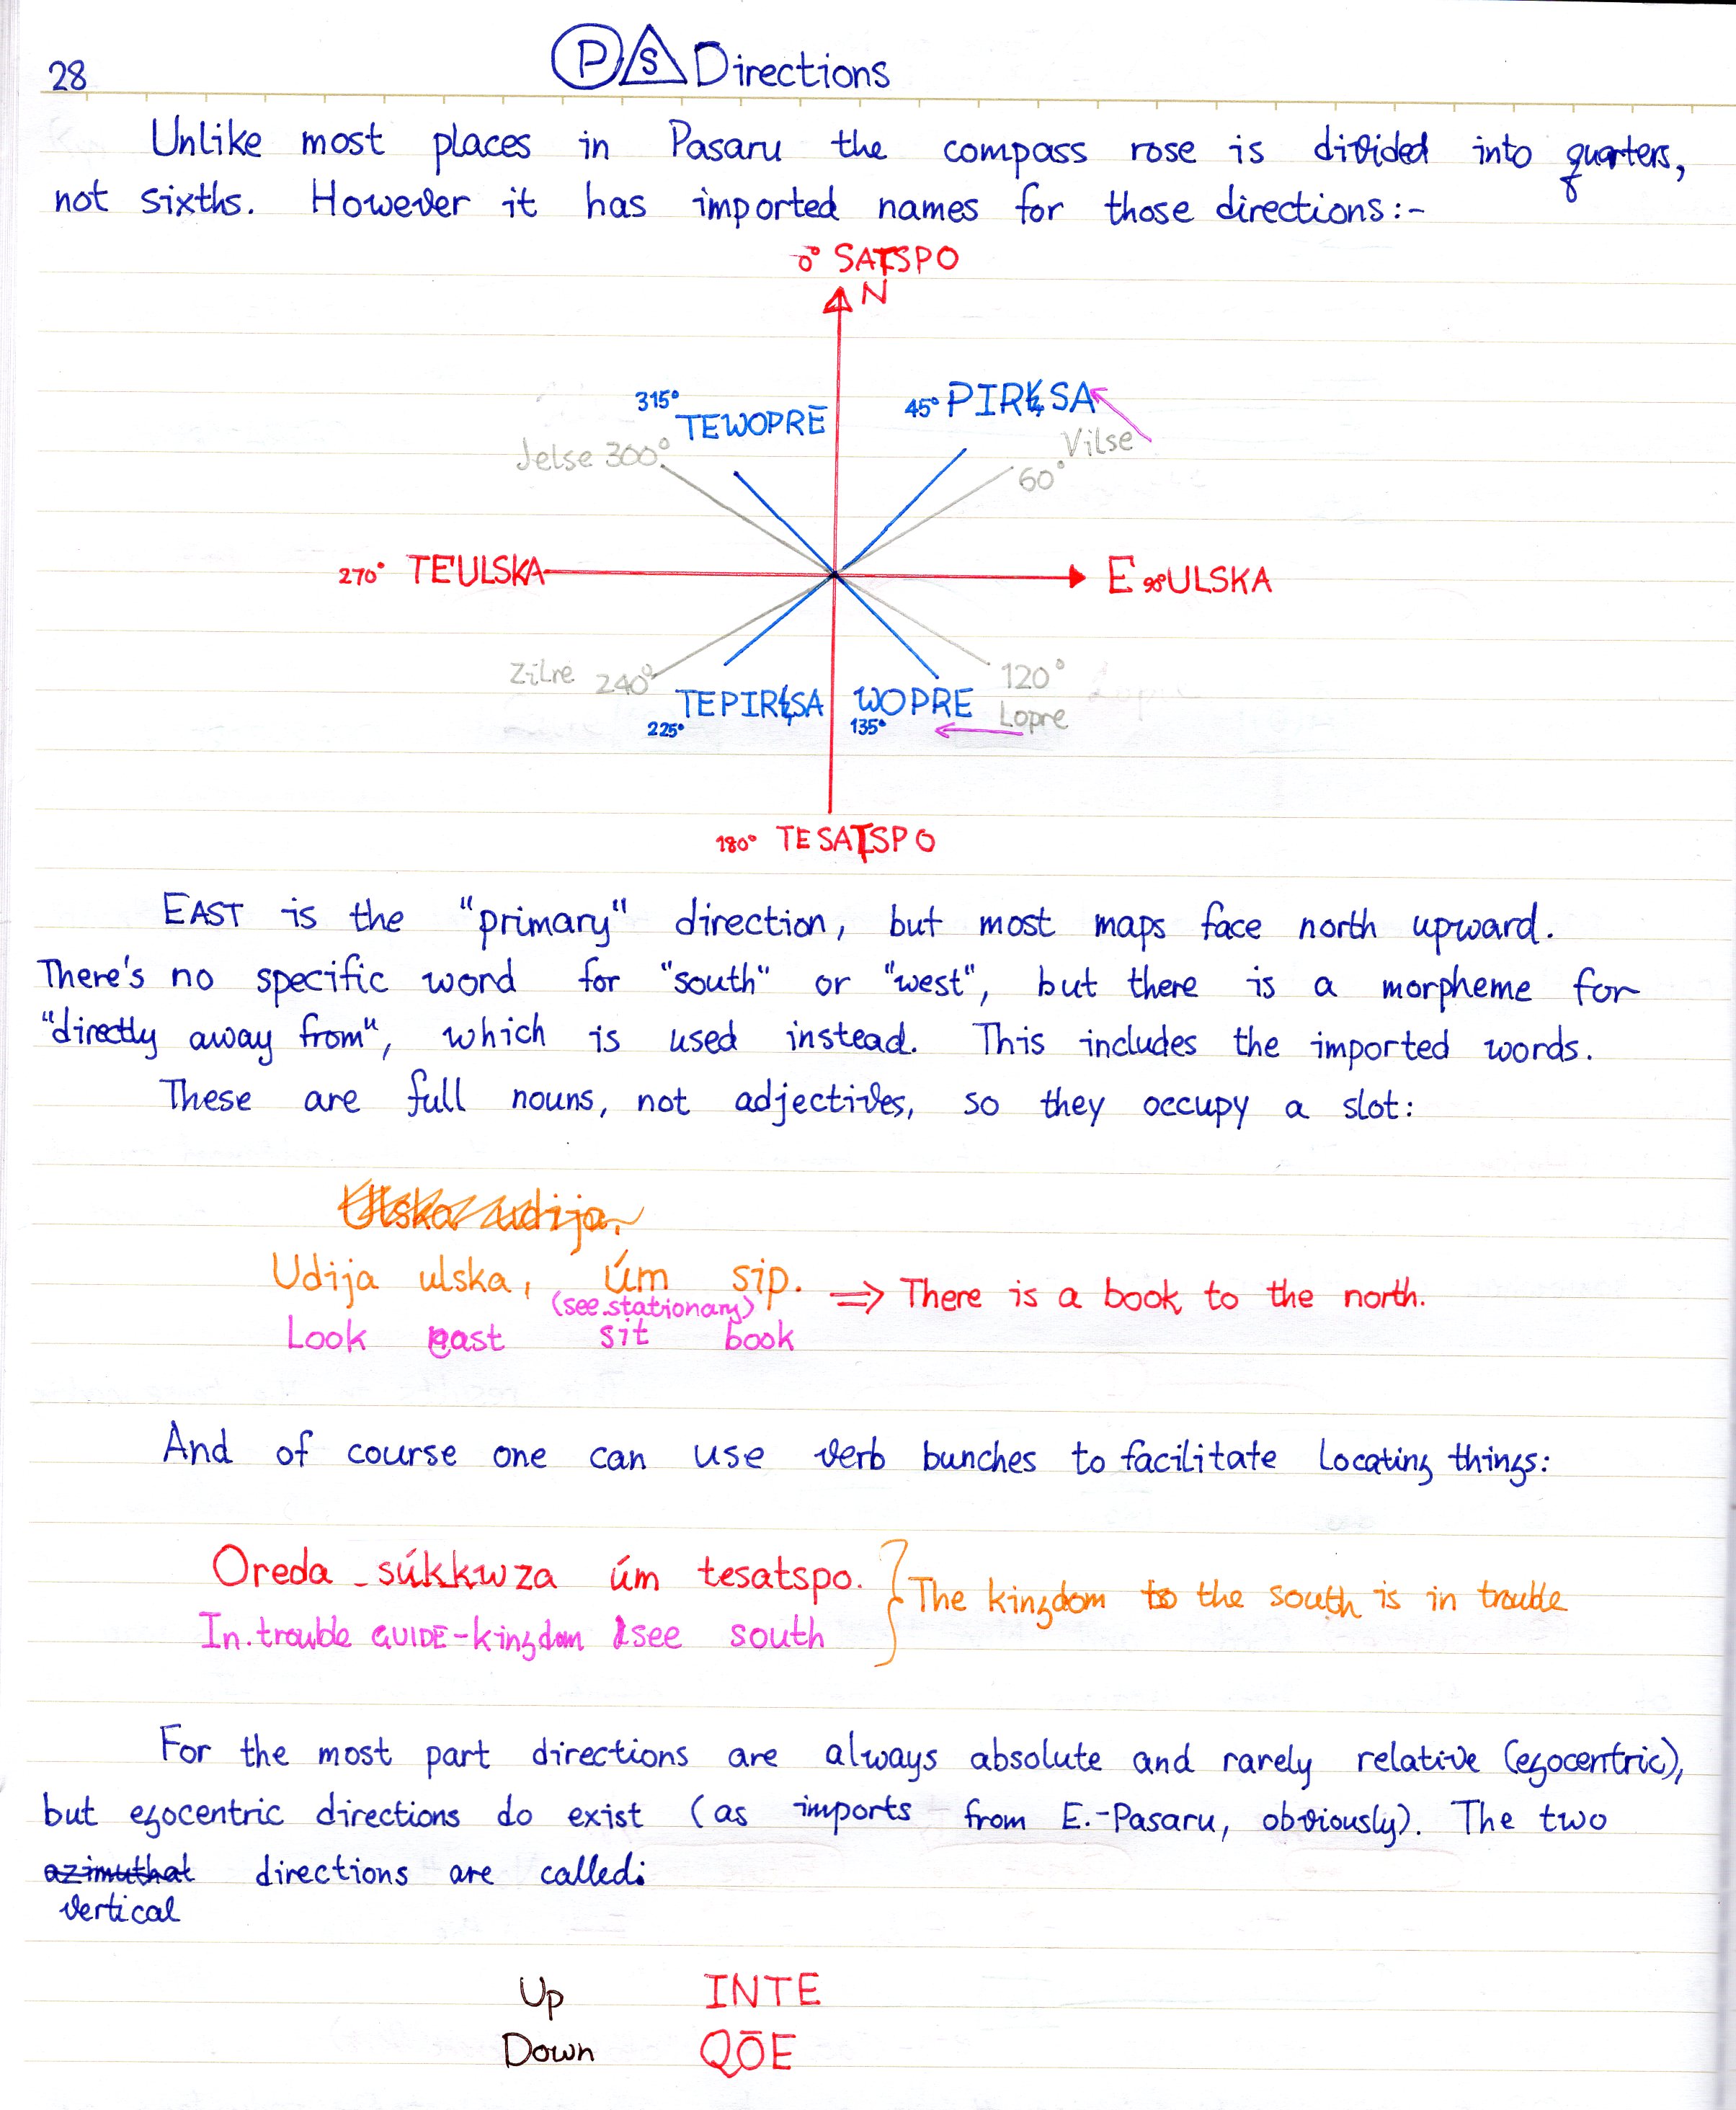 28
P S Directions
Unlike most places in Pasaru the compass rose is divided into quarters,
not sixths. However it has imported names for those directions:-
0° SATSPO
N
315° TEWOPRĒ
45° PIRŁSA
Jelse 300°
Vilse
60°
270° TEULSKA
E 90° ULSKA
Zilre 240°
120°
TEPIRŁSA
WOPRE
Lopre
225°
135°
180° TESATSPO
EAST is the "primary" direction, but most maps face north upward.
There's no specific word for "south" or "west", but there is a morpheme for
"directly away from", which is used instead. This includes the imported words.
These are full nouns, not adjectives, so they occupy a slot:
Ulska udija.
Udija ulska, úm sip. ⇒ There is a book to the north.
(see.stationary)
Look east sit book
And of course one can use verb bunches to facilitate locating things:
Oreda súkkwza úm tesatspo. } The kingdom to the south is in trouble
In.trouble GUIDE-kingdom see south
For the most part directions are always absolute and rarely relative (egocentric),
but egocentric directions do exist (as imports from E.-Pasaru, obviously). The two
azimuthal directions are called:
vertical
Up INTE
Down QŌE